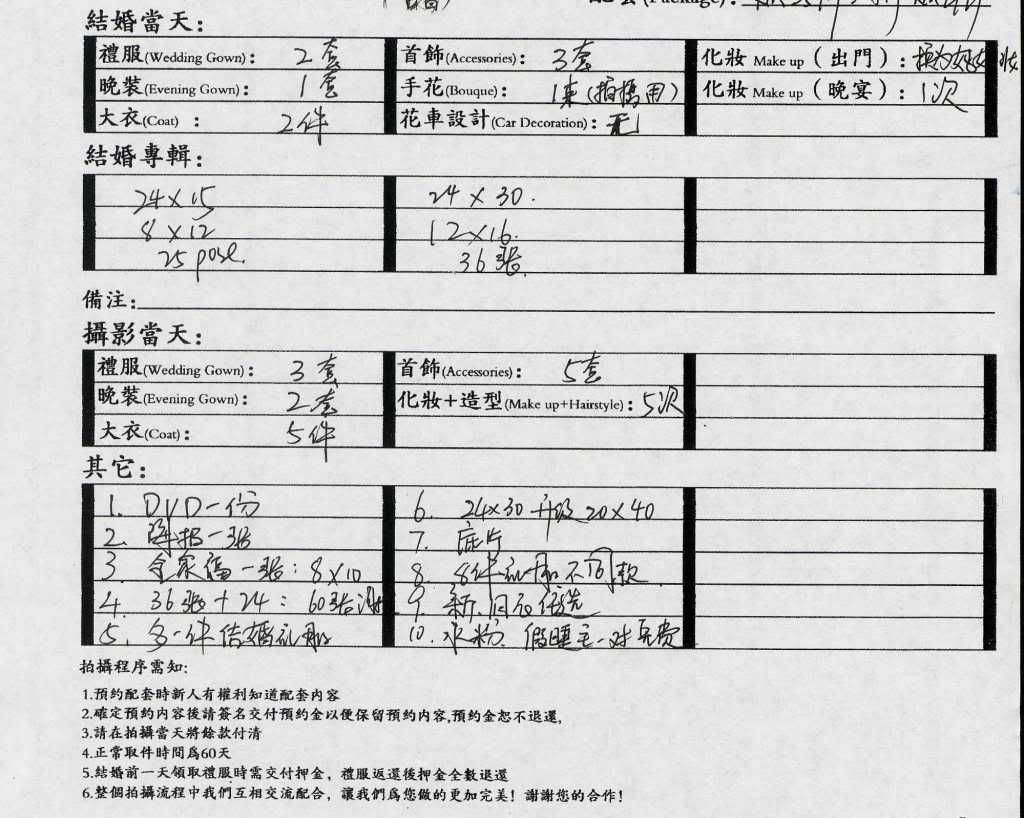 配套(Package):
結婚當天:
禮服(Wedding Gown): 2套 首飾(Accessories): 3套 化妝 Make up (出門):
晚裝(Evening Gown): 1套 手花(Bouque): 1束(拍攝用) 化妝 Make up (晚宴): 1次
大衣(Coat) : 2件 花車設計(Car Decoration): 无
結婚專輯:
24×15 24×30.
8×12 12×16.
25 pose. 36張.
備注:
攝影當天:
禮服(Wedding Gown): 3套 首飾(Accessories): 5套
晚裝(Evening Gown): 2套 化妝+造型(Make up+Hairstyle): 5次
大衣(Coat): 5件
其它:
1. DVD一份 6. 24×30 升级 20×40
2. 海报一张 7. 底片
3. 全家福一张: 8×10 8. 8件 不同款
4. 36张+24: 60张 9. 新.旧 任选
5. 多一件结婚礼服 10. 水粉. 假睫毛一对免费
拍攝程序需知:
1.預約配套時新人有權利知道配套內容
2.確定預約內容後請簽名交付預約金以便保留預約內容,預約金恕不退還,
3.請在拍攝當天將餘款付清
4.正常取件時間爲60天
5.結婚前一天領取禮服時需交付押金，禮服返還後押金全數退還
6.整個拍攝流程中我們互相交流配合，讓我們爲您做的更加完美！謝謝您的合作！